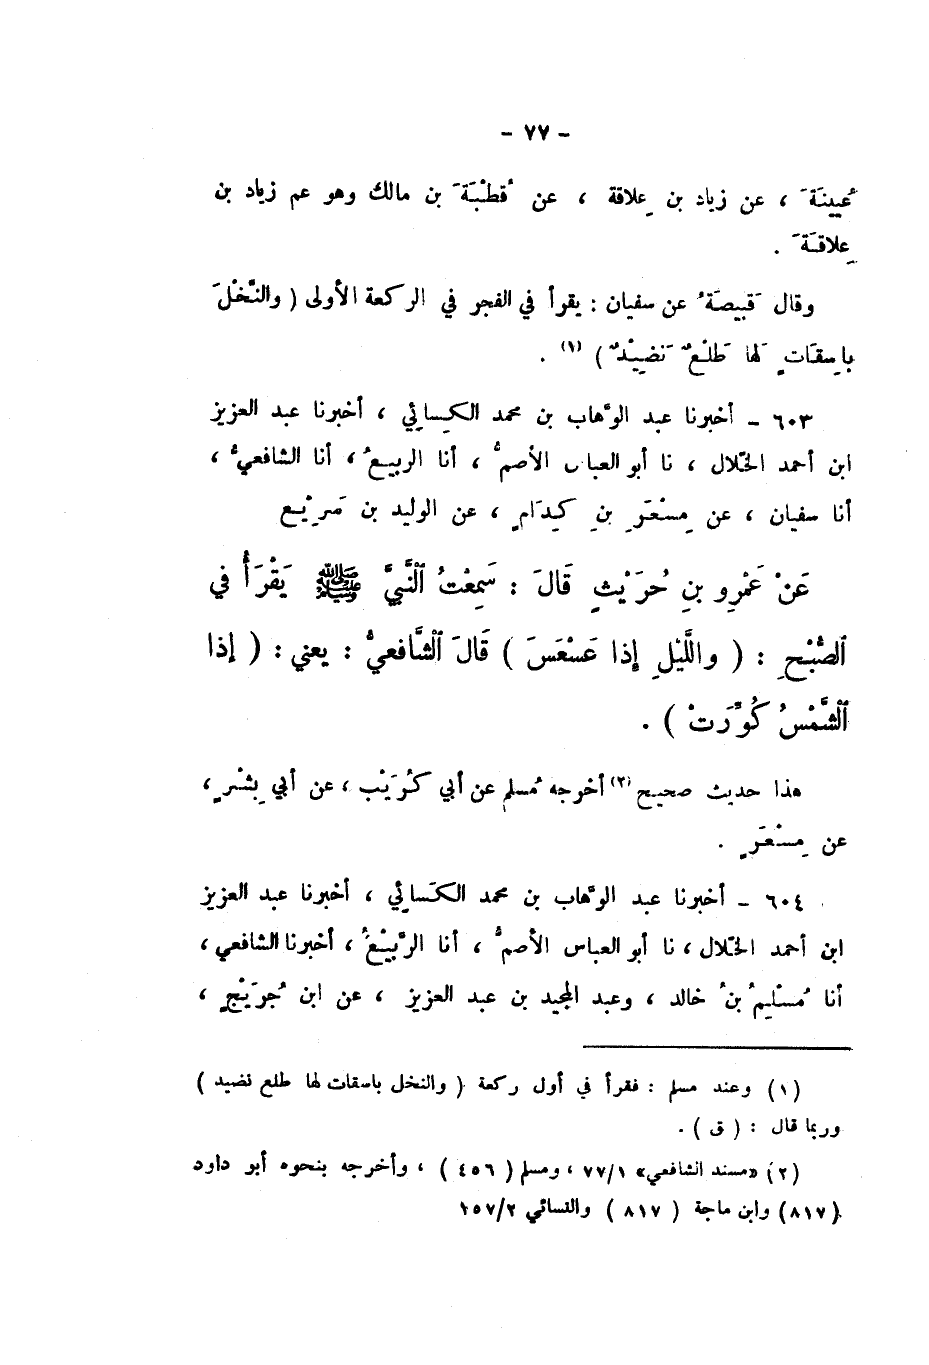 - ٧٧ -
عُيينَةَ ، عن زياد بن عِلاقة ، عن قُطْبَةَ بن مالك وهو عم زياد بن
عِلاقَةَ .
وقال قَبيصَةُ عن سفيان : يقرأ في الفجر في الركعة الأولى ( والنَّخْلَ
باسِقاتٍ لَها طَلْعٌ نَضِيْدٌ ) (١) .
٦٠٣ - أخبرنا عبد الوهَّاب بن محمد الكِسائِي ، أخبرنا عبد العزيز
ابن أحمد الخلّال ، نا أبو العباس الأصمُّ ، أنا الربيعُ ، أنا الشافعيُّ ،
أنا سفيان ، عن مِسْعَرِ بنِ كِدَامٍ ، عن الوليد بن سَرِيْع
عَنْ عَمْرِو بنِ حُرَيْثٍ قَالَ : سَمِعْتُ ٱلنَّبيَّ ﷺ يَقْرَأُ في
ٱلصُّبْحِ : ( واللَّيْلِ إِذا عَسْعَسَ ) قَالَ ٱلشَّافعيُّ : يعني : ( إِذا
ٱلشَّمْسُ كُوِّرَتْ ) .
هذا حديث صحيح (٢) أخرجه مُسلم عن أبي كُرَيْب ، عن أبي بِشْرٍ ،
عن مِسْعَرٍ .
٦٠٤ - أخبرنا عبد الوهَّاب بن محمد الكَسائِي ، أخبرنا عبد العزيز
ابن أحمد الخلّال ، نا أبو العباس الأصمُّ ، أنا الرَّبيْعُ ، أخبرنا الشافعي ،
أنا مُسْلِمُ بنُ خالد ، وعبد المجيد بن عبد العزيز ، عن ابن جُرَيْجٍ ،
(١) وعند مسلم : فقرأ في أول ركعة ( والنخل باسقات لها طلع نضيد )
وربما قال : ( ق ) .
(٢) «مسند الشافعي» ٧٧/١ ، ومسلم ( ٤٥٦ ) ، وأخرجه بنحوه أبو داود
(٨١٧) وابن ماجة ( ٨١٧ ) والنسائي ١٥٧/٢